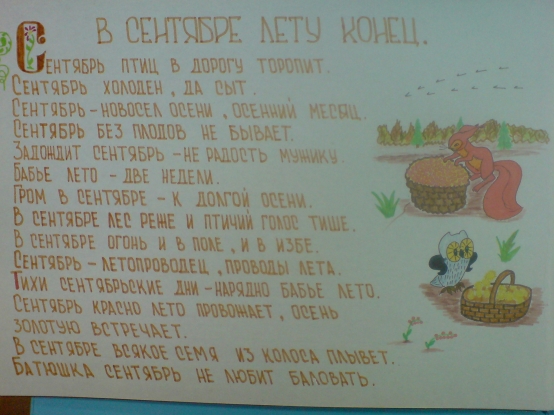 В СЕНТЯБРЕ ЛЕТУ КОНЕЦ.
СЕНТЯБРЬ ПТИЦ В ДОРОГУ ТОРОПИТ.
СЕНТЯБРЬ ХОЛОДЕН, ДА СЫТ.
СЕНТЯБРЬ - НОВОСЕЛ ОСЕНИ, ОСЕННИЙ МЕСЯЦ.
СЕНТЯБРЬ БЕЗ ПЛОДОВ НЕ БЫВАЕТ.
ЗАДОЖДИТ СЕНТЯБРЬ - НЕ РАДОСТЬ МУЖИКУ.
БАБЬЕ ЛЕТО - ДВЕ НЕДЕЛИ.
ГРОМ В СЕНТЯБРЕ - К ДОЛГОЙ ОСЕНИ.
В СЕНТЯБРЕ ЛЕС РЕЖЕ И ПТИЧИЙ ГОЛОС ТИШЕ.
В СЕНТЯБРЕ ОГОНЬ И В ПОЛЕ, И В ИЗБЕ.
СЕНТЯБРЬ - ЛЕТОПРОВОДЕЦ, ПРОВОДЫ ЛЕТА.
ТИХИ СЕНТЯБРЬСКИЕ ДНИ - НАРЯДНО БАБЬЕ ЛЕТО.
СЕНТЯБРЬ КРАСНО ЛЕТО ПРОВОЖАЕТ, ОСЕНЬ
ЗОЛОТУЮ ВСТРЕЧАЕТ.
В СЕНТЯБРЕ ВСЯКОЕ СЕМЯ ИЗ КОЛОСА ПЛЫВЕТ.
БАТЮШКА СЕНТЯБРЬ НЕ ЛЮБИТ БАЛОВАТЬ.